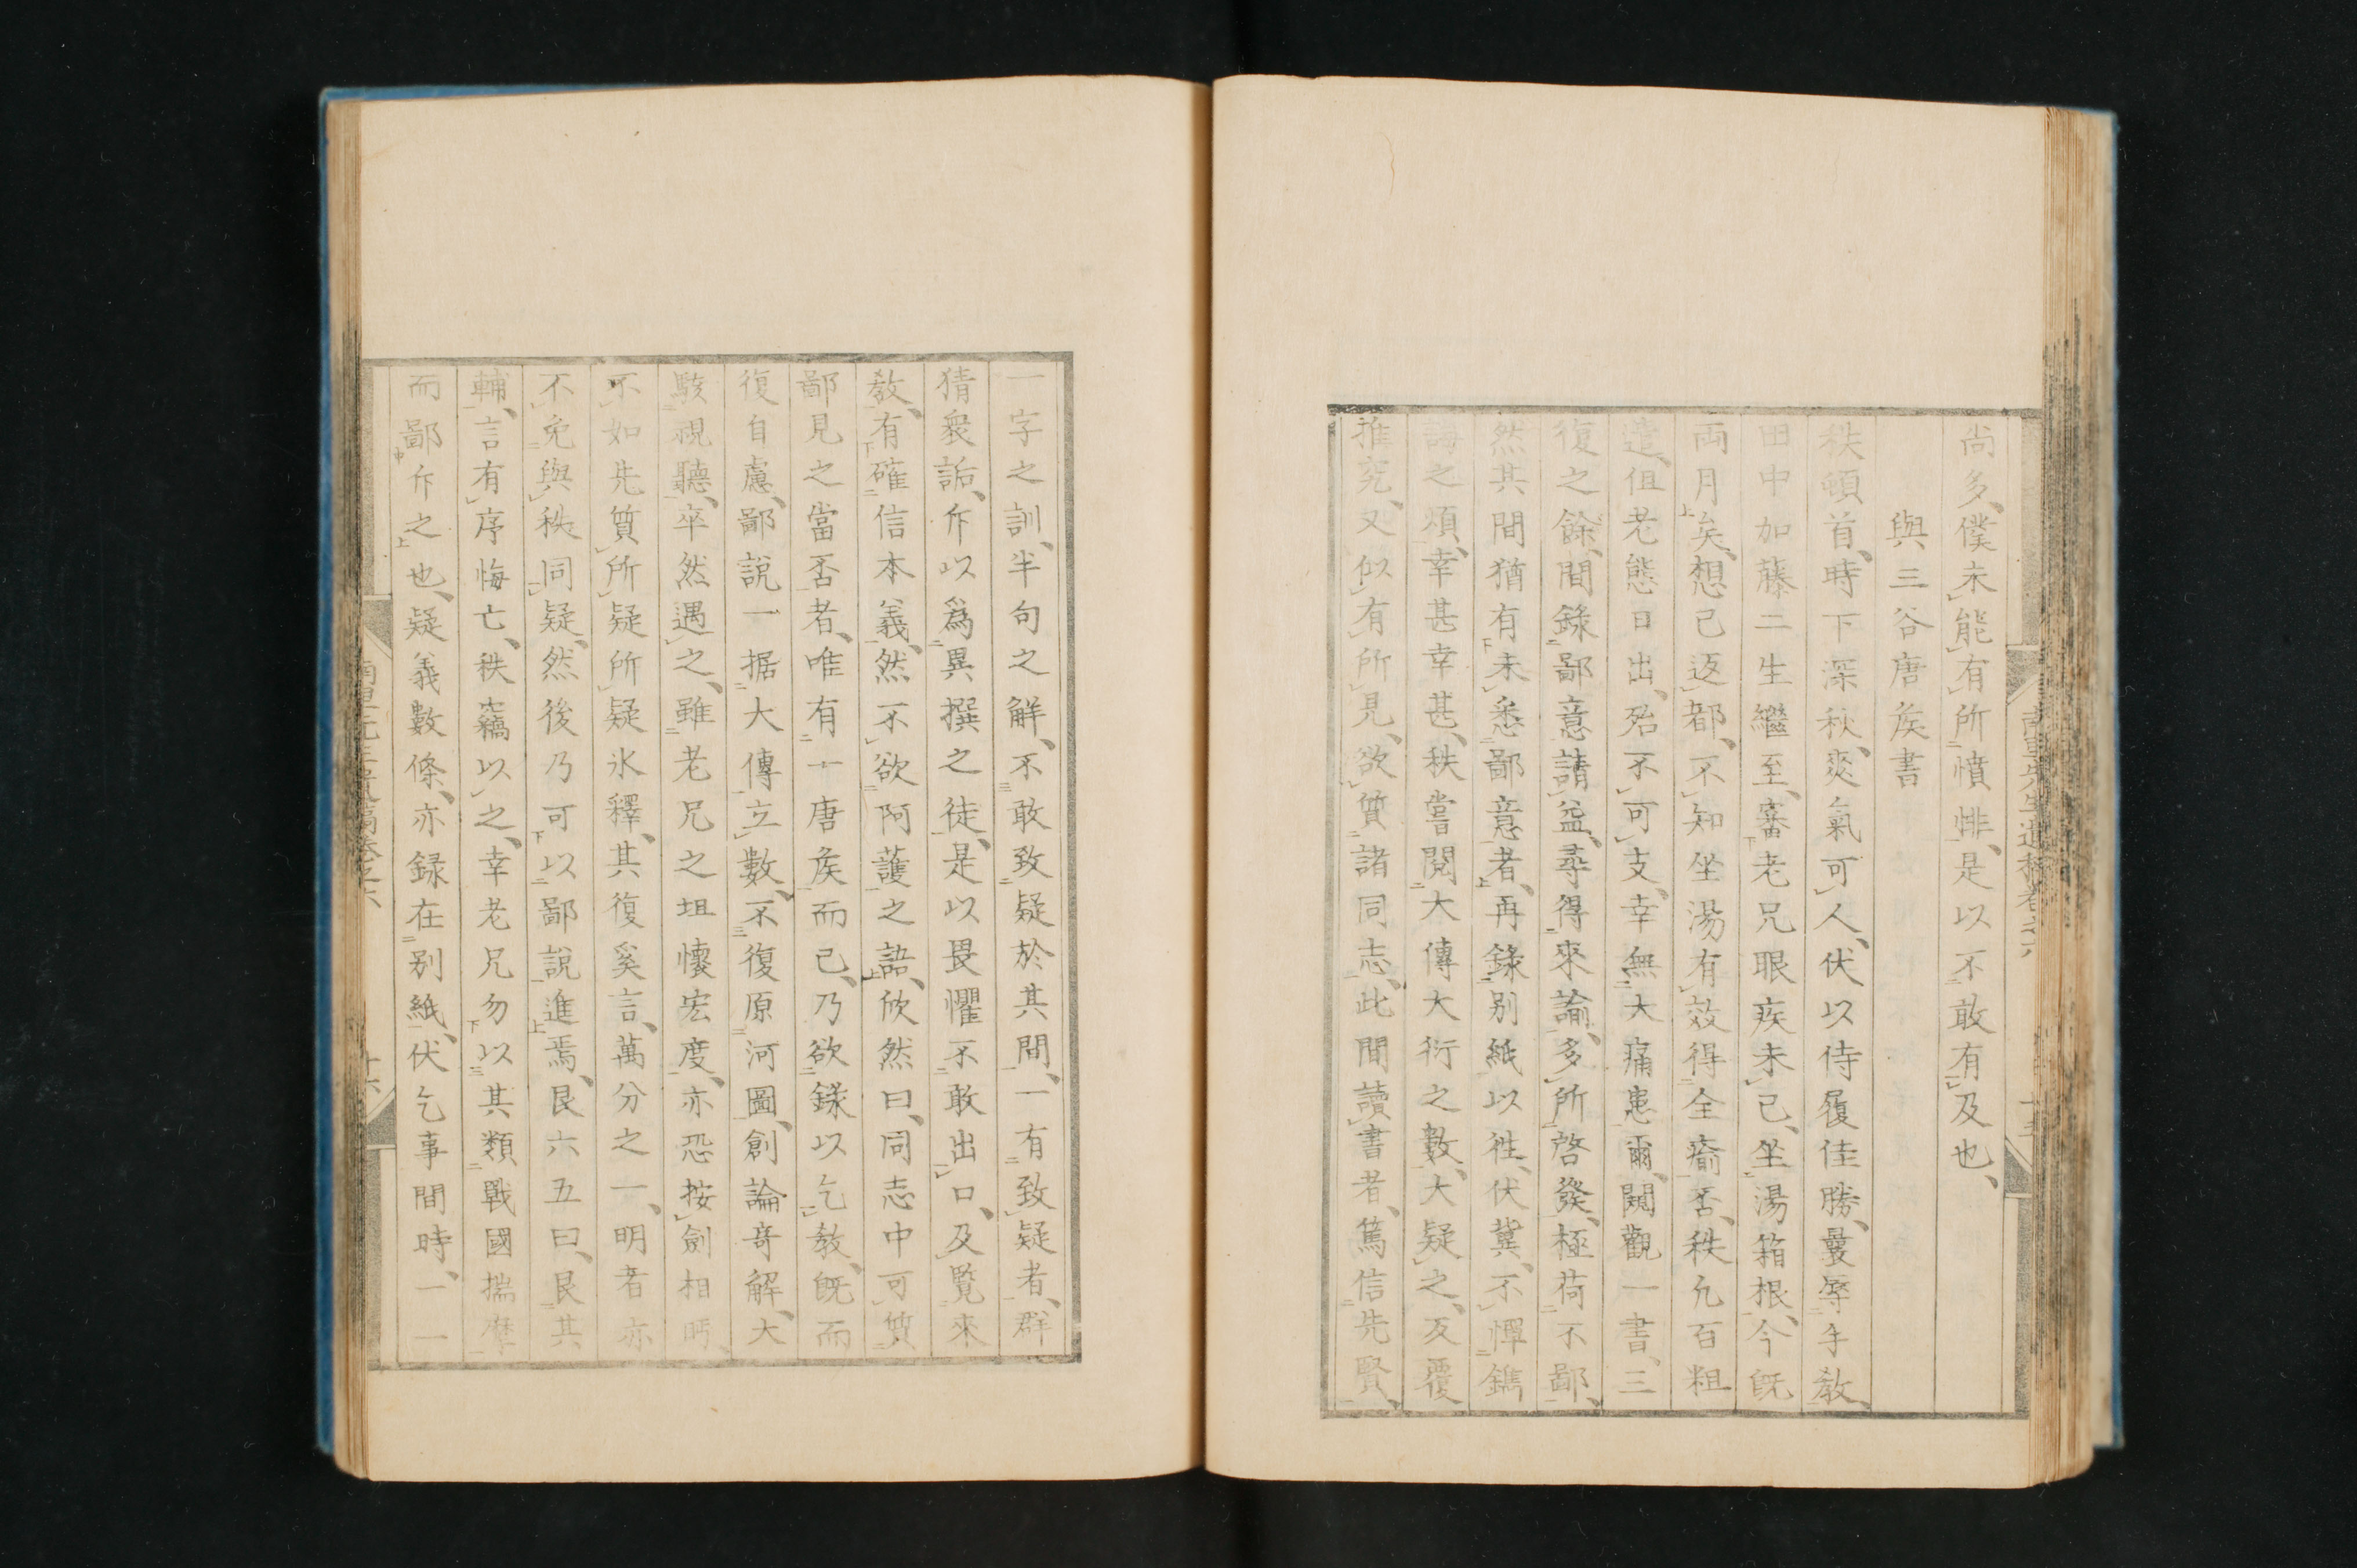 尚多、僕未能有所憤悱、是以不敢有及也、
與三谷唐矦書
秩頓首、時下深秋、爽氣可人、伏以侍履佳勝、曩辱手教、
田中加藤二生繼至、審老兄眼疾未已、坐湯箱根、今既
両月矣、想已返都、不知坐湯有效得全瘉否、秩凢百粗
遣、伹老態日出、殆不可支、幸無大痛患爾、閱觀一書、三
復之餘、間錄鄙意請益、尋得來諭、多所啓發、極荷不鄙、
然其間猶有未悉鄙意者、再錄别紙以徃、伏冀、不憚鐫
誨之煩、幸甚幸甚、秩嘗閱大傳大衍之數、大疑之、反覆
推究、又似有所見、欲質諸同志、此間讀書者、篤信先賢、
一字之訓、半句之解、不敢致疑於其間、一有致疑者、群
猜衆詬、斥以爲異撰之徒、是以畏懼不敢出口、及覧來
教、有確信本義、然不欲阿護之語、欣然曰、同志中可質
鄙見之當否者、唯有一唐矦而已、乃欲錄以乞教、既而
復自慮、鄙說一据大傳立數、不復原河圖、創論竒解、大
駭視聽、卒然遇之、雖老兄之坦懷宏度、亦恐按劍相眄、
不如先質所疑、所疑氷釋、其復奚言、萬分之一、明者亦
不免與秩同疑、然後乃可以鄙說進焉、艮六五曰、艮其
輔、言有序悔亡、秩竊以之、幸老兄勿以其類戰國揣摩
而鄙斥之也、疑義數條、亦録在别紙、伏乞事間時、一一